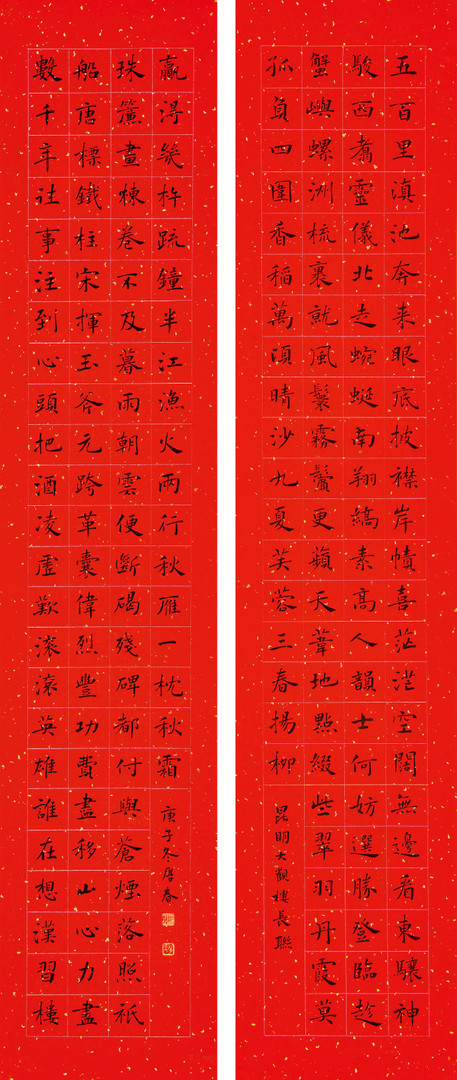 五百里滇池奔来眼底披襟岸幘喜茫茫空闊無邊看東驤神
駿西翥靈儀北走蜿蜒南翔縞素高人韻士何妨選勝登臨趁
蟹嶼螺洲梳裹就風鬟霧鬢更蘋天葦地點綴些翠羽丹霞莫
孤負四圍香稻萬頃晴沙九夏芙蓉三春揚柳
昆明大觀樓長聯
數千年往事注到心頭把酒凌虛歎滾滾英雄誰在想漢習樓
船唐標鐵柱宋揮玉斧元跨革囊偉烈豐功費盡移山心力盡
珠簾畫棟卷不及暮雨朝雲便斷碣殘碑都付與蒼煙落照衹
贏得幾杵疏鐘半江漁火兩行秋雁一枕秋霜
庚子冬春